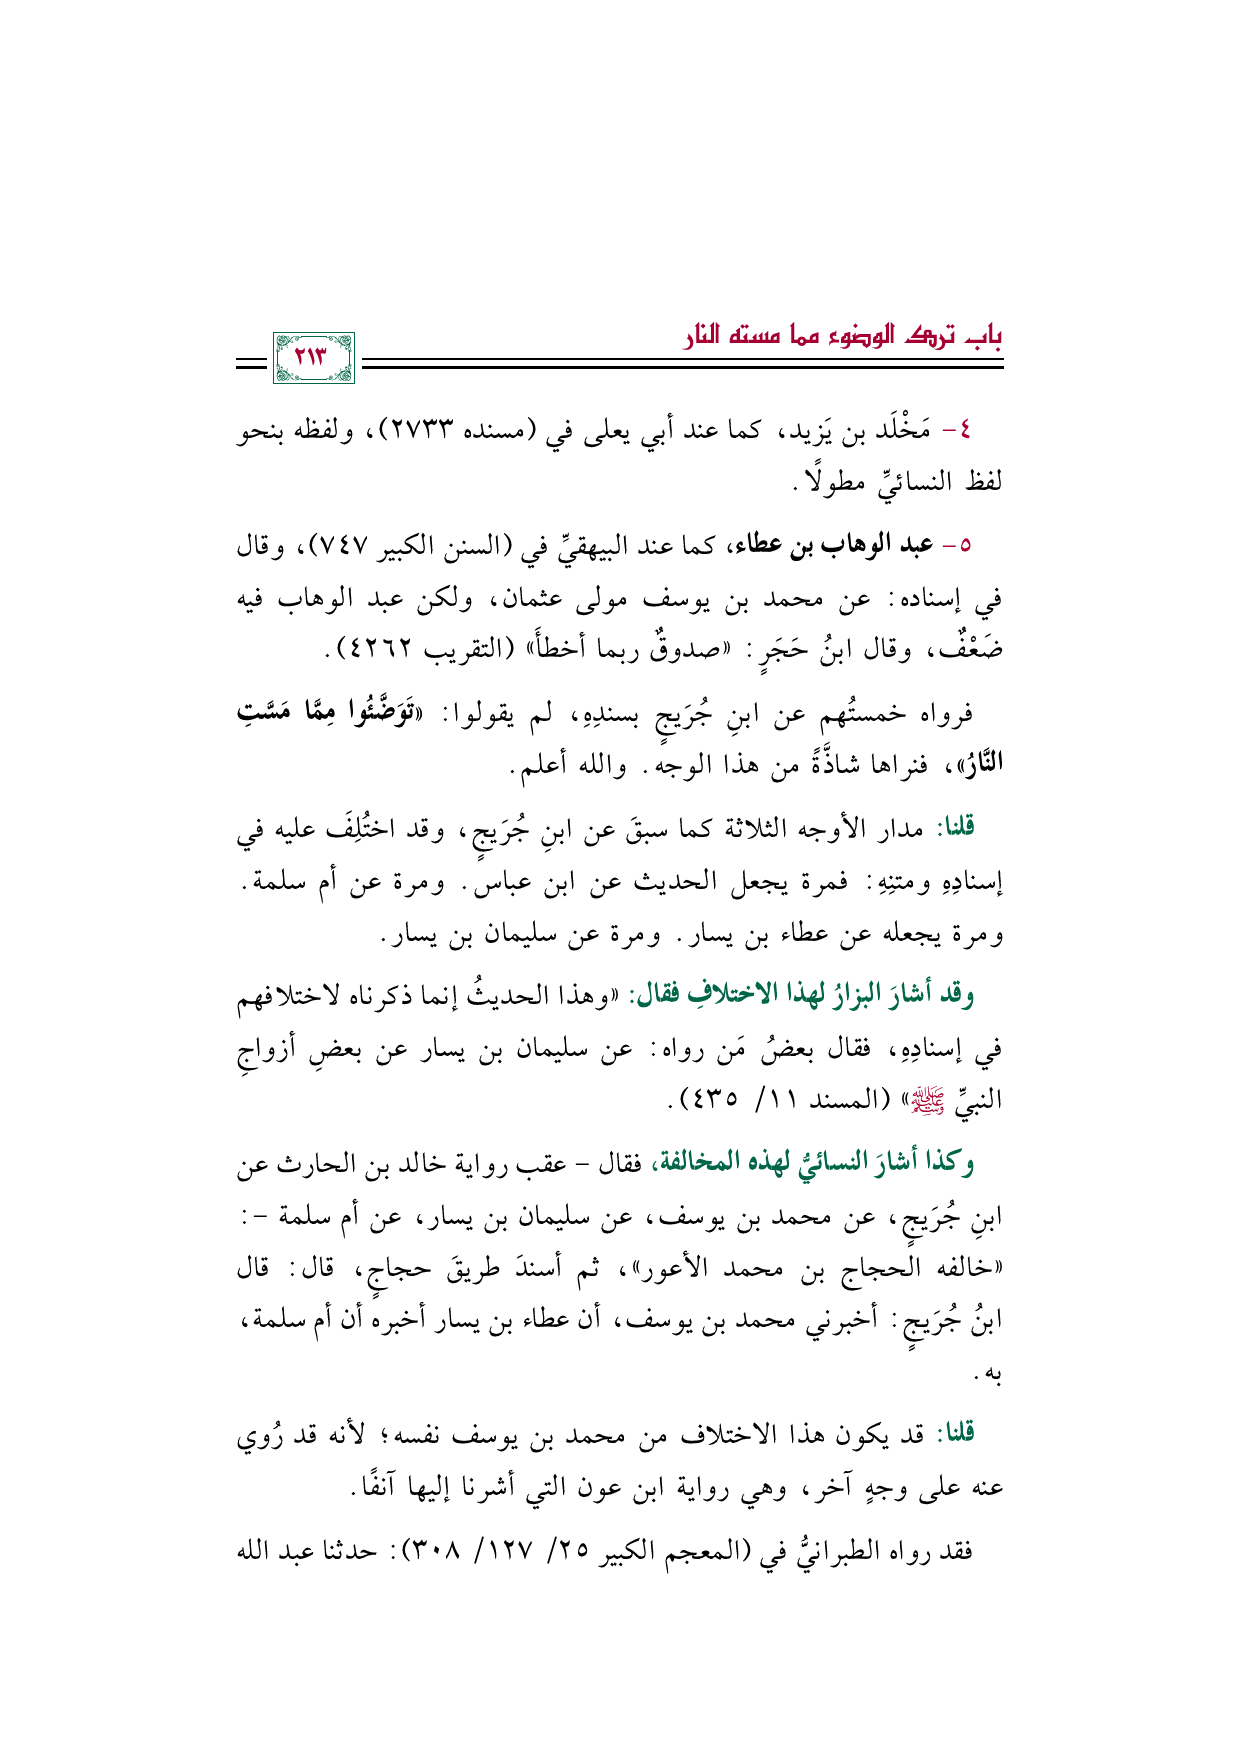 باب ترك الوضوء مما مسته النار
٢١٣
٤- مَخْلَد بن يَزيد، كما عند أبي يعلى في (مسنده ٢٧٣٣)، ولفظه بنحو
لفظ النسائيِّ مطولًا.
٥- عبد الوهاب بن عطاء، كما عند البيهقيِّ في (السنن الكبير ٧٤٧)، وقال
في إسناده: عن محمد بن يوسف مولى عثمان، ولكن عبد الوهاب فيه
ضَعْفٌ، وقال ابنُ حَجَرٍ: «صدوقٌ ربما أخطأَ» (التقريب ٤٢٦٢).
فرواه خمستُهم عن ابنِ جُرَيجٍ بسندِهِ، لم يقولوا: «تَوَضَّئُوا مِمَّا مَسَّتِ
النَّارُ»، فنراها شاذَّةً من هذا الوجه. والله أعلم.
قلنا: مدار الأوجه الثلاثة كما سبقَ عن ابنِ جُرَيجٍ، وقد اختُلِفَ عليه في
إسنادِهِ ومتنِهِ: فمرة يجعل الحديث عن ابن عباس. ومرة عن أم سلمة.
ومرة يجعله عن عطاء بن يسار. ومرة عن سليمان بن يسار.
وقد أشارَ البزارُ لهذا الاختلافِ فقال: «وهذا الحديثُ إنما ذكرناه لاختلافهم
في إسنادِهِ، فقال بعضُ مَن رواه: عن سليمان بن يسار عن بعضِ أزواجِ
النبيِّ ﷺ» (المسند ١١/ ٤٣٥).
وكذا أشارَ النسائيُّ لهذه المخالفة، فقال - عقب رواية خالد بن الحارث عن
ابنِ جُرَيجٍ، عن محمد بن يوسف، عن سليمان بن يسار، عن أم سلمة -:
«خالفه الحجاج بن محمد الأعور»، ثم أسندَ طريقَ حجاجٍ، قال: قال
ابنُ جُرَيجٍ: أخبرني محمد بن يوسف، أن عطاء بن يسار أخبره أن أم سلمة،
به.
قلنا: قد يكون هذا الاختلاف من محمد بن يوسف نفسه؛ لأنه قد رُوي
عنه على وجهٍ آخر، وهي رواية ابن عون التي أشرنا إليها آنفًا.
فقد رواه الطبرانيُّ في (المعجم الكبير ٢٥/ ١٢٧/ ٣٠٨): حدثنا عبد الله